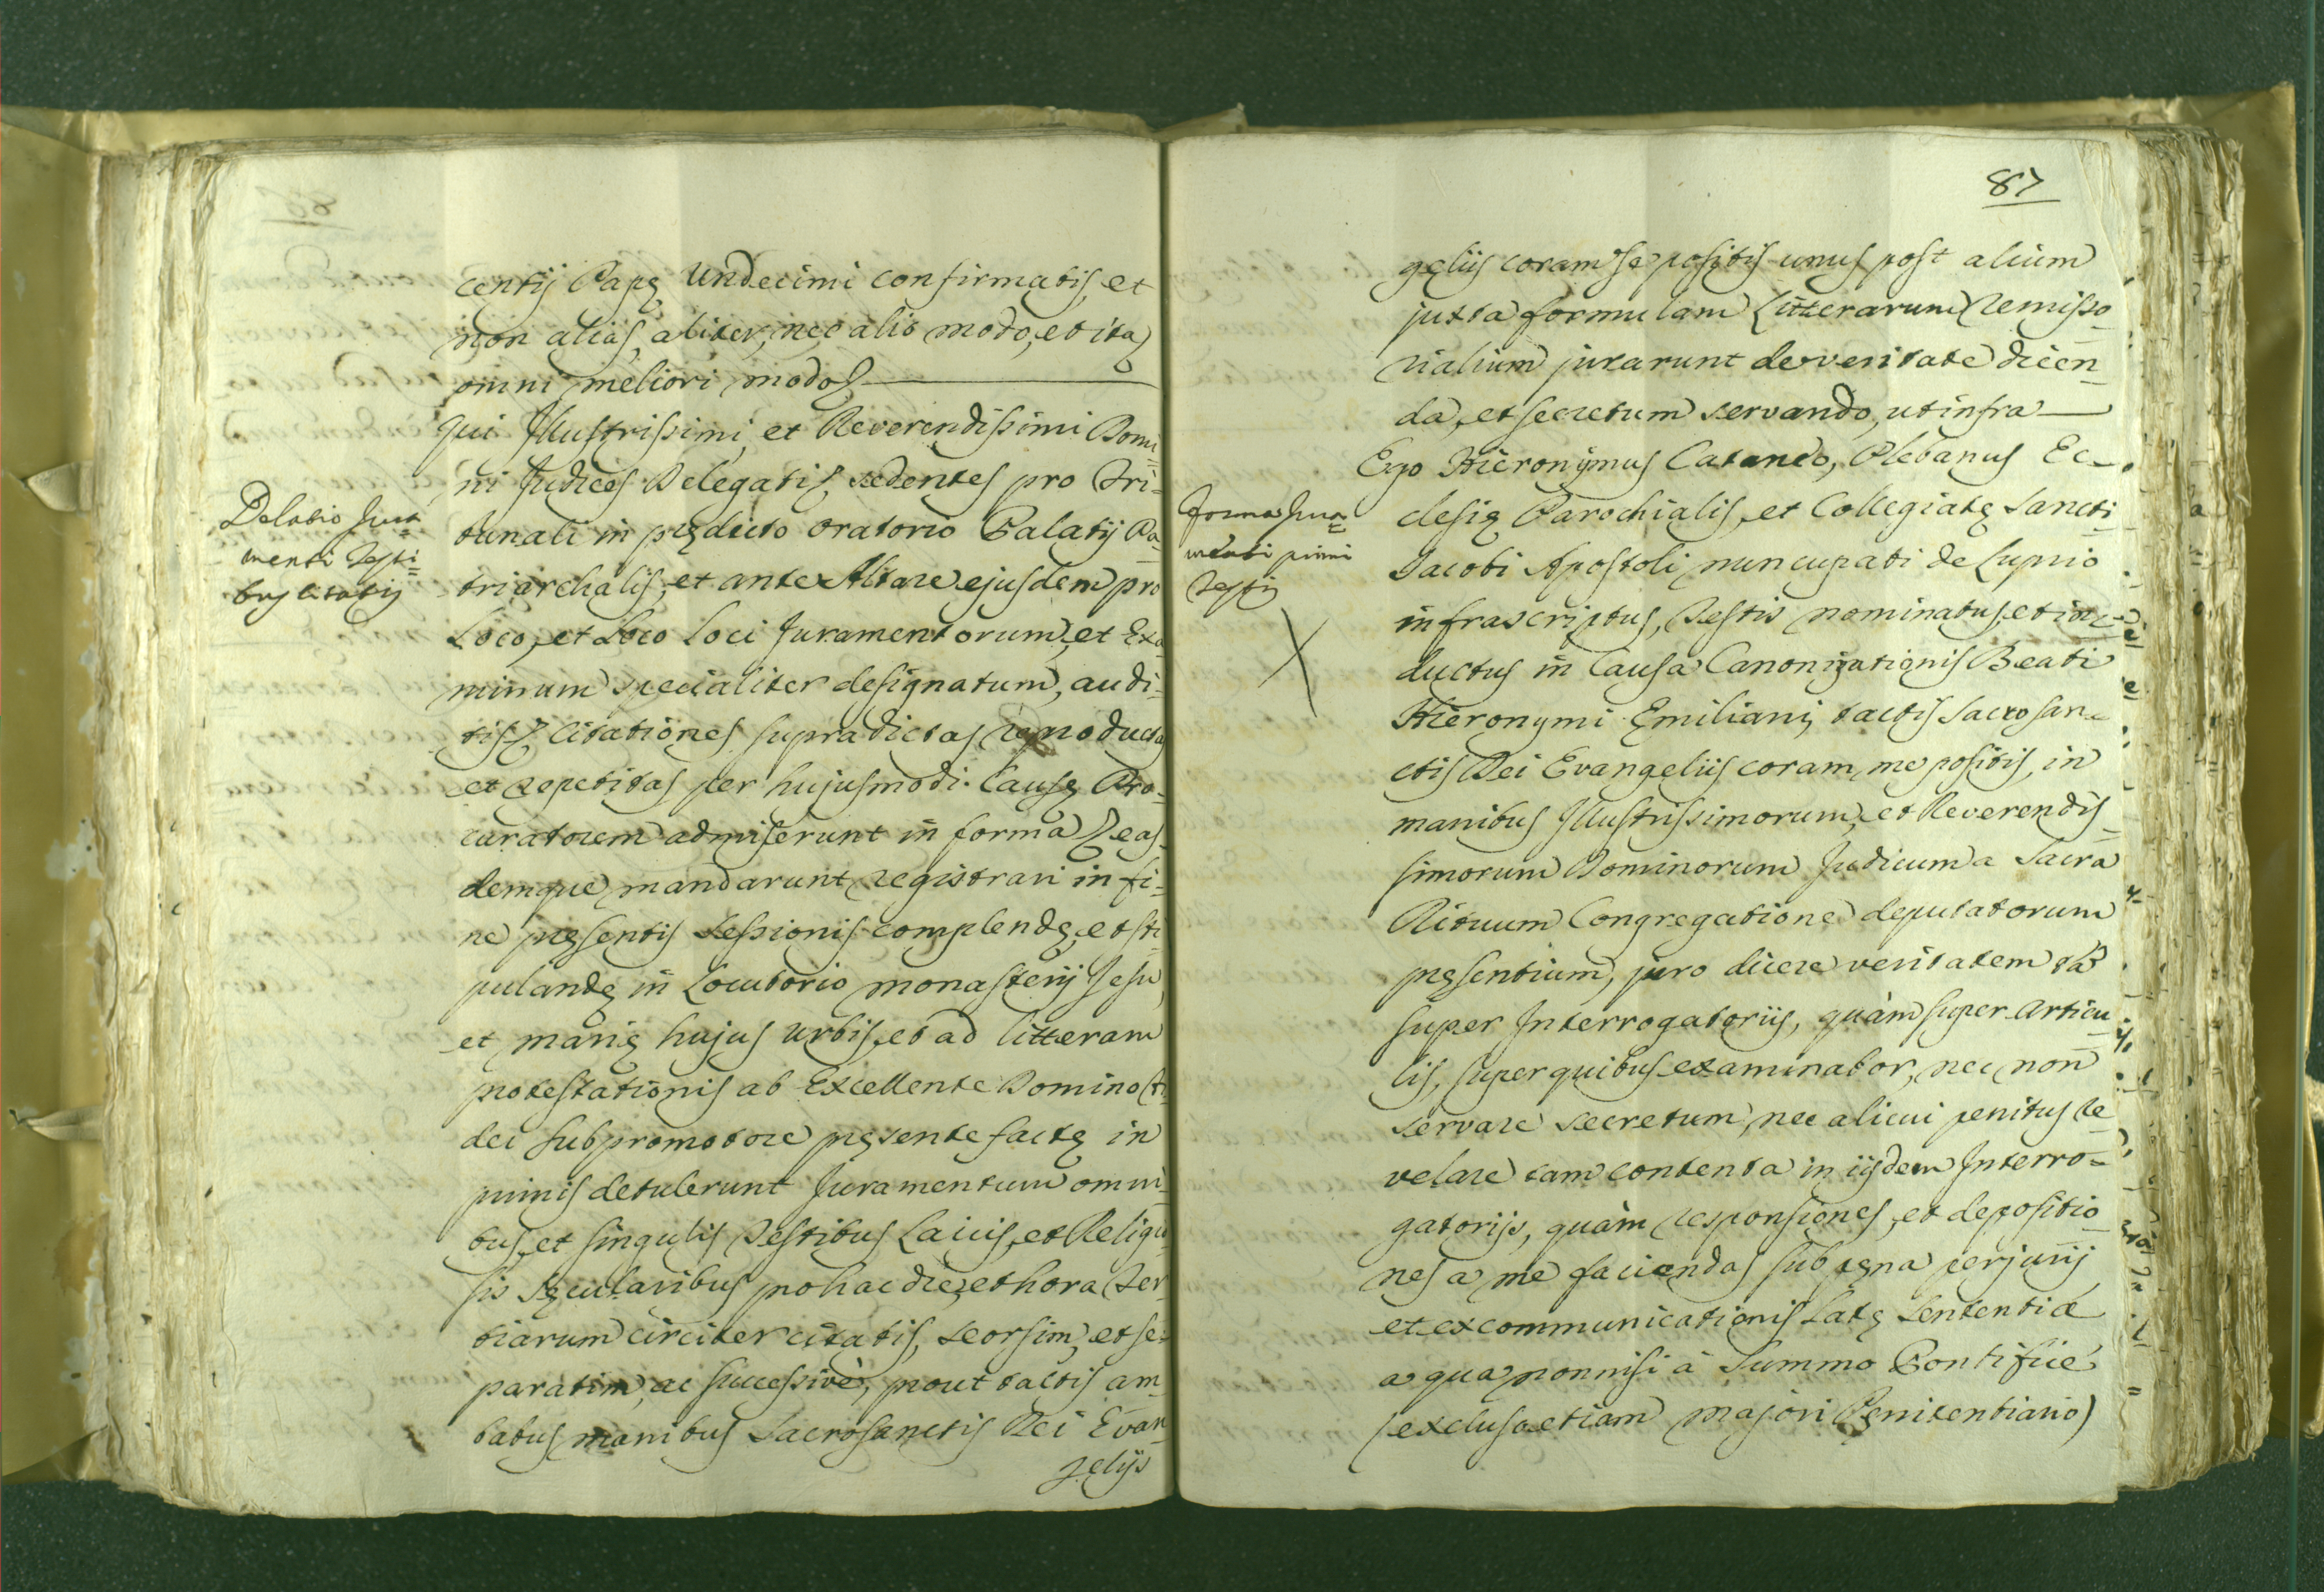 centij Papę Undecimi confirmatis, et
non alias, aliter, nec alio modo, et ita
omni meliori modo
Qui Illustrissimi, et Reverendissimi Domi=
ni Judices Delegati, sedentes pro Tri=
bunali in prędicto Oratorio Palatij Pa=
triarchalis, et ante Altare ejusdem pro
Loco, et Loco Loci Juramentorum, et Exa=
minum specialiter designatum, audi=
tis, citationes supradictas reproductas
et repetitas per hujusmodi Causę Pro=
curatorem admiserunt in forma, eas=
demque mandarunt registrari in fi=
ne pręsentis Sessionis complendę, et sti=
pulandę in Locutorio monasterij Jesu,
et marię hujus Urbis, et ad litteram
protestationis ab Excellente Domino
dei Subpromotore pręsente factę in
primis detulerunt Juramentum omni=
bus, et singulis Testibus Laicis, et Religio
sis Sęcularibus pro hac die, et hora Ter
tiarum circiter citatis, seorsim, et se=
paratim, ac successivè, prout tactis am
babus manibus Sacrosanctis Dei Evan
gelijs
Delatio Jura=
menti Testi=
bus citatis
87
geliis coram se positis unus post alium
juxta formulam Litterarum Remisso
rialium jurarunt de veritate dicen
da, et secretum servando, ut infra
Ego Hieronymus Cataneo, Plebanus Ec=
clesię Parochialis, et Collegiatę Sancti
Jacobi Apostoli nuncupati de Luprio
infrascriptus, Testis nominatus, et in
ductus in Causa Canonizationis Beati
Hieronymi Emiliani, tactis Sacrosan=
ctis Dei Evangeliis coram me positis, in
manibus Illustrissimorum, et Reverendis
simorum Dominorum Judicum a Sacra
Rituum Congregatione deputatorum
pręsentium, juro dicere veritatem tà
super Interrogatoriis, quàm super Articu
lis, super quibus examinabor, nec non
servare secretum, nec alicui penitus re
velare tam contenta in iisdem Interro=
gatorijs, quàm responsiones, et depositio
nes a me faciendas sub pęna perjurij
et excommunicationis Latę Sententiæ
a qua nonnisi à Summo Pontifice
(excluso etiam majori Pęnitentiario)
Forma Jura=
menti primi
Testis